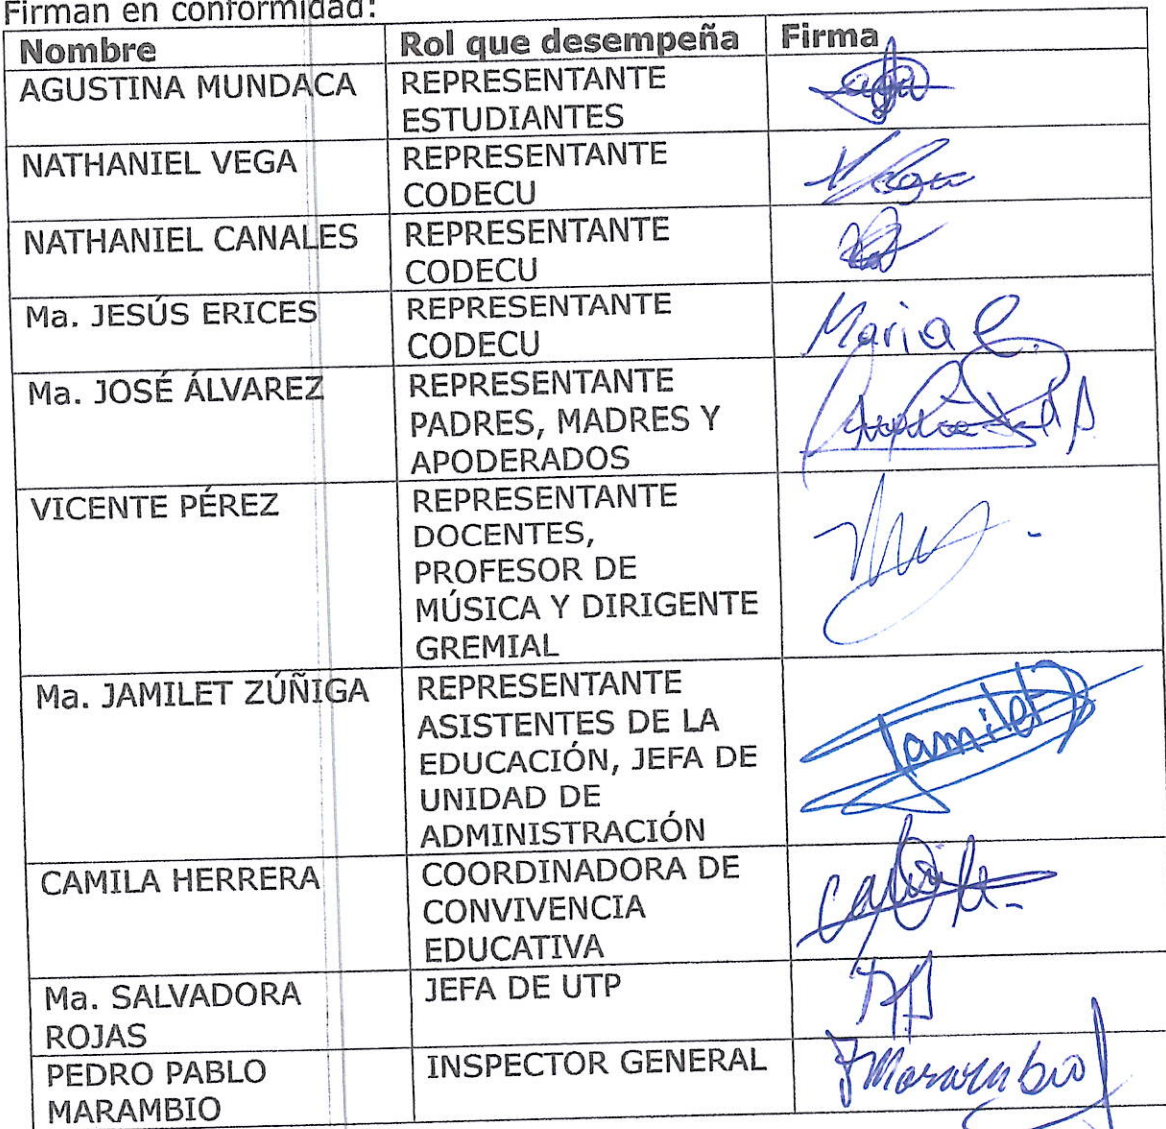 Firman en conformidad:
Nombre Rol que desempeña Firma
AGUSTINA MUNDACA REPRESENTANTE
ESTUDIANTES
NATHANIEL VEGA REPRESENTANTE
CODECU
NATHANIEL CANALES REPRESENTANTE
CODECU
Ma. JESÚS ERICES REPRESENTANTE Maria E.
CODECU
Ma. JOSÉ ÁLVAREZ REPRESENTANTE
PADRES, MADRES Y
APODERADOS
VICENTE PÉREZ REPRESENTANTE
DOCENTES,
PROFESOR DE
MÚSICA Y DIRIGENTE
GREMIAL
Ma. JAMILET ZÚÑIGA REPRESENTANTE
ASISTENTES DE LA Jamilet
EDUCACIÓN, JEFA DE
UNIDAD DE
ADMINISTRACIÓN
CAMILA HERRERA COORDINADORA DE
CONVIVENCIA
EDUCATIVA
Ma. SALVADORA JEFA DE UTP
ROJAS
PEDRO PABLO INSPECTOR GENERAL
MARAMBIO